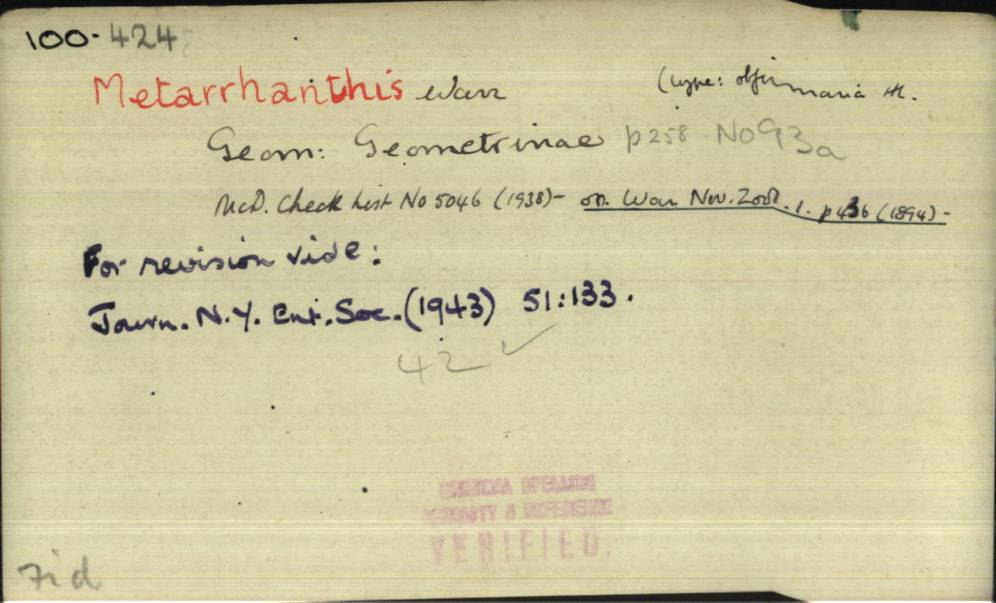 100.424
Metarrhanthis Warr (type: obfirmaria H.
Geom: Geometrinae p 258 No 93a
McD. Check List No 5046 (1938)- on. Warr Nov. Zool. 1. p 436 (1894)-
For revision vide:
Journ. N.Y. Ent. Soc. (1943) 51:133.
42 ✓
VERIFIED.
7id